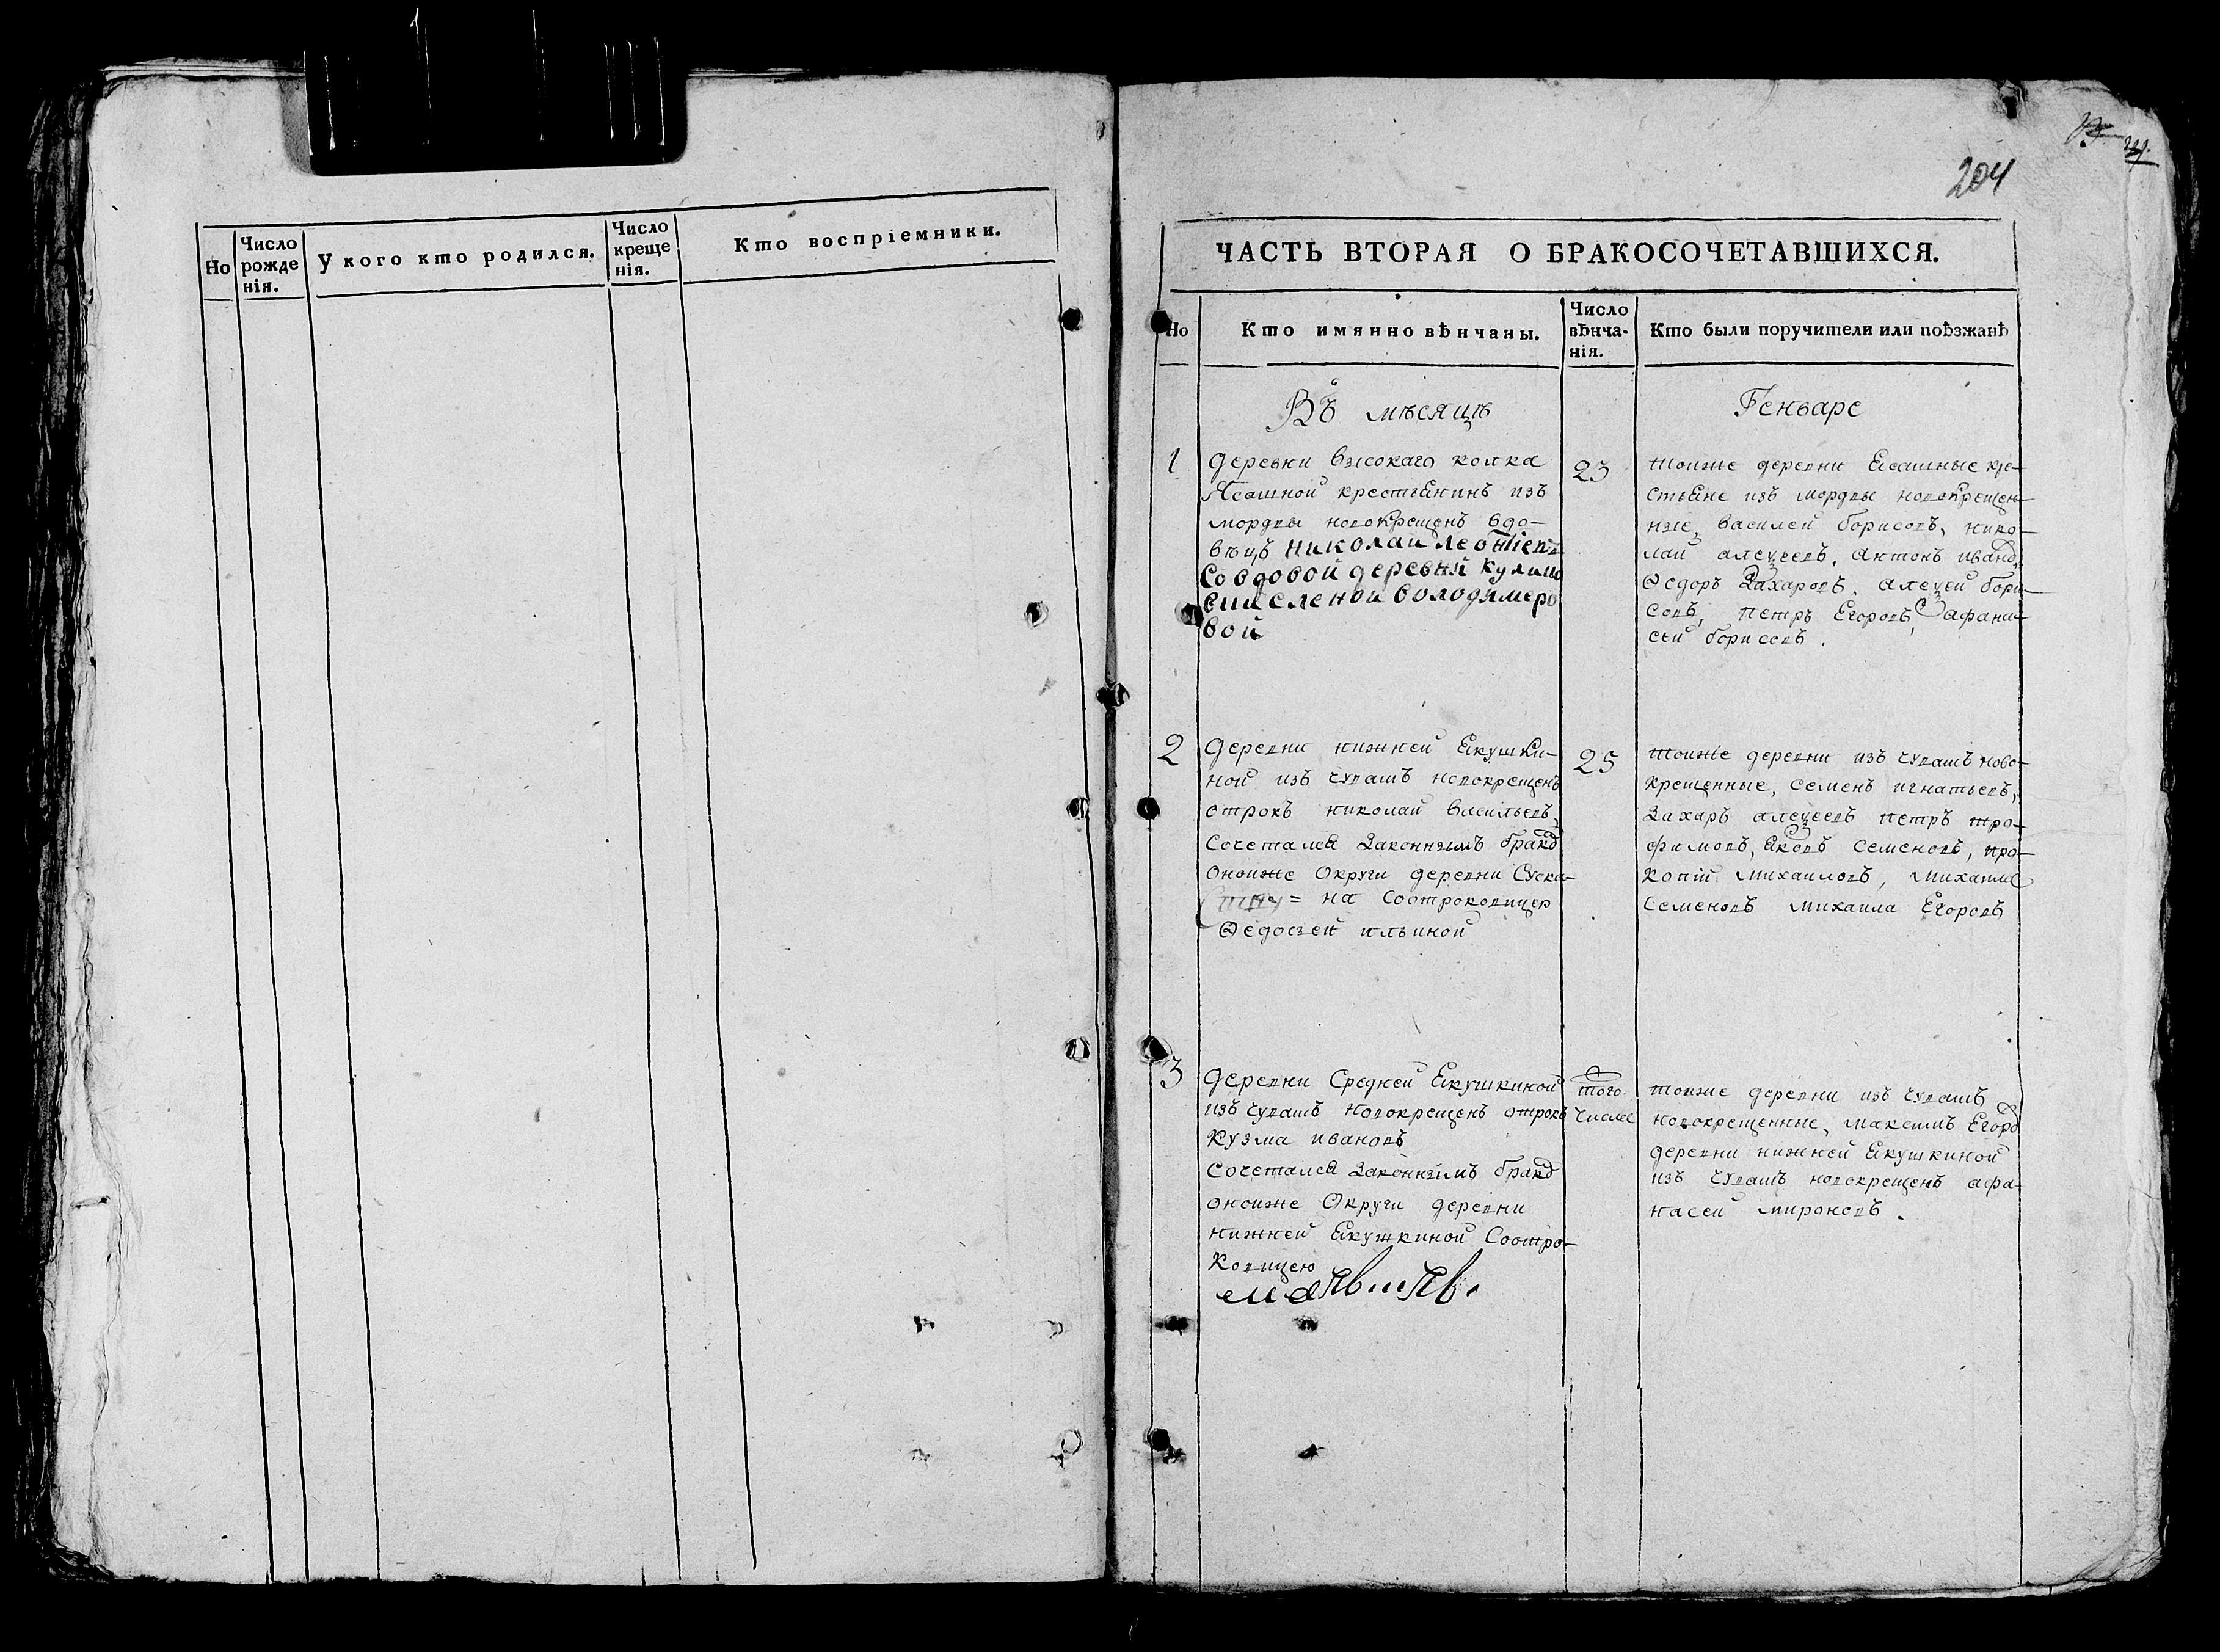 Но
Число рожденія.
У кого кто родился.
Число крещенія.
Кто воспріемники.
204
ЧАСТЬ ВТОРАЯ О БРАКОСОЧЕТАВШИХСЯ.
Но
Кто имянно вѣнчаны.
Число вѣнча-нія.
Кто были поручители или поѣзжанѣ
Въ мѣсяцѣ
Генваре
1
деревни высокаго колка
Ясашной крестьянинъ изъ
мордвы новокрещенъ вдо-
вѣцъ николаи леонтіевъ
Со вдовой деревни
еленой володимеро
вой
23
тоиже деревни Ясашные кре-
стьяне изъ мордвы новокрещен-
ные, василей борисовъ, нико-
лаи алеѯеевъ, антонъ иванов,
Ѳедоръ Захаровъ, алеѯей бори-
совъ, петръ Егоровъ, афана-
сеи борисовъ.
2
деревни нижней Якушки-
ной изъ чувашъ новокрещенъ
отрокъ николаи васильевъ,
сочетался Законнымъ браком
оноиже Округи деревни Суска-
= на Соотроковицею
Ѳедосьей ильиной
25
тоиже деревни изъ чувашъ ново-
крещенные, семенъ игнатьевъ,
Захаръ алеѯеевъ петръ тро-
фимовъ, Яковъ семеновъ, про-
копіи михаиловъ, михаила
семеновъ михаила Егоровъ
3
деревни Средней Якушкиной
изъ чувашъ новокрещенъ отрокъ
Кузма ивановъ
сочетался Законнымъ браком
оноиже Округи деревни
нижней Якушкиной Соотро-
ковицею
того
числа
тоиже деревни изъ чувашъ
новокрещенные, максимъ Егоров
деревни нижней Якушкиной
изъ чувашъ новокрещенъ афа-
насеи мироновъ.